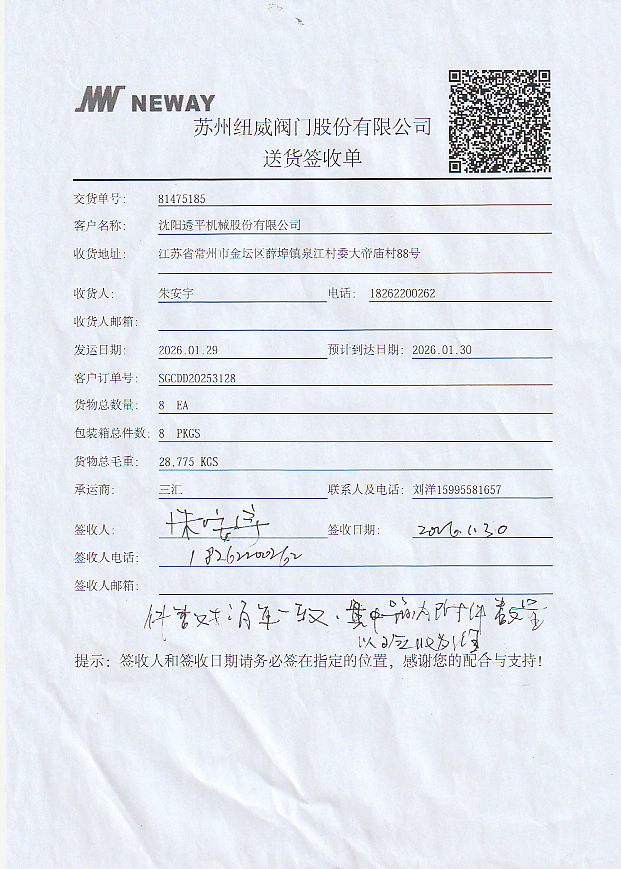 NEWAY
苏州纽威阀门股份有限公司
送货签收单
交货单号: 81475185
客户名称: 沈阳透平机械股份有限公司
收货地址: 江苏省常州市金坛区薛埠镇泉江村委大帝庙村88号
收货人: 朱安宇 电话: 18262200262
收货人邮箱:
发运日期: 2026.01.29 预计到达日期: 2026.01.30
客户订单号: SGCDD20253128
货物总数量: 8 EA
包装箱总件数: 8 PKGS
货物总毛重: 28,775 KGS
承运商: 三汇 联系人及电话: 刘洋15995581657
签收人: 朱安宇 签收日期: 2026.1.30
签收人电话: 18262200262
签收人邮箱:
件数对清单一致,其中箱内附件数量
以验收为准
提示: 签收人和签收日期请务必签在指定的位置, 感谢您的配合与支持!